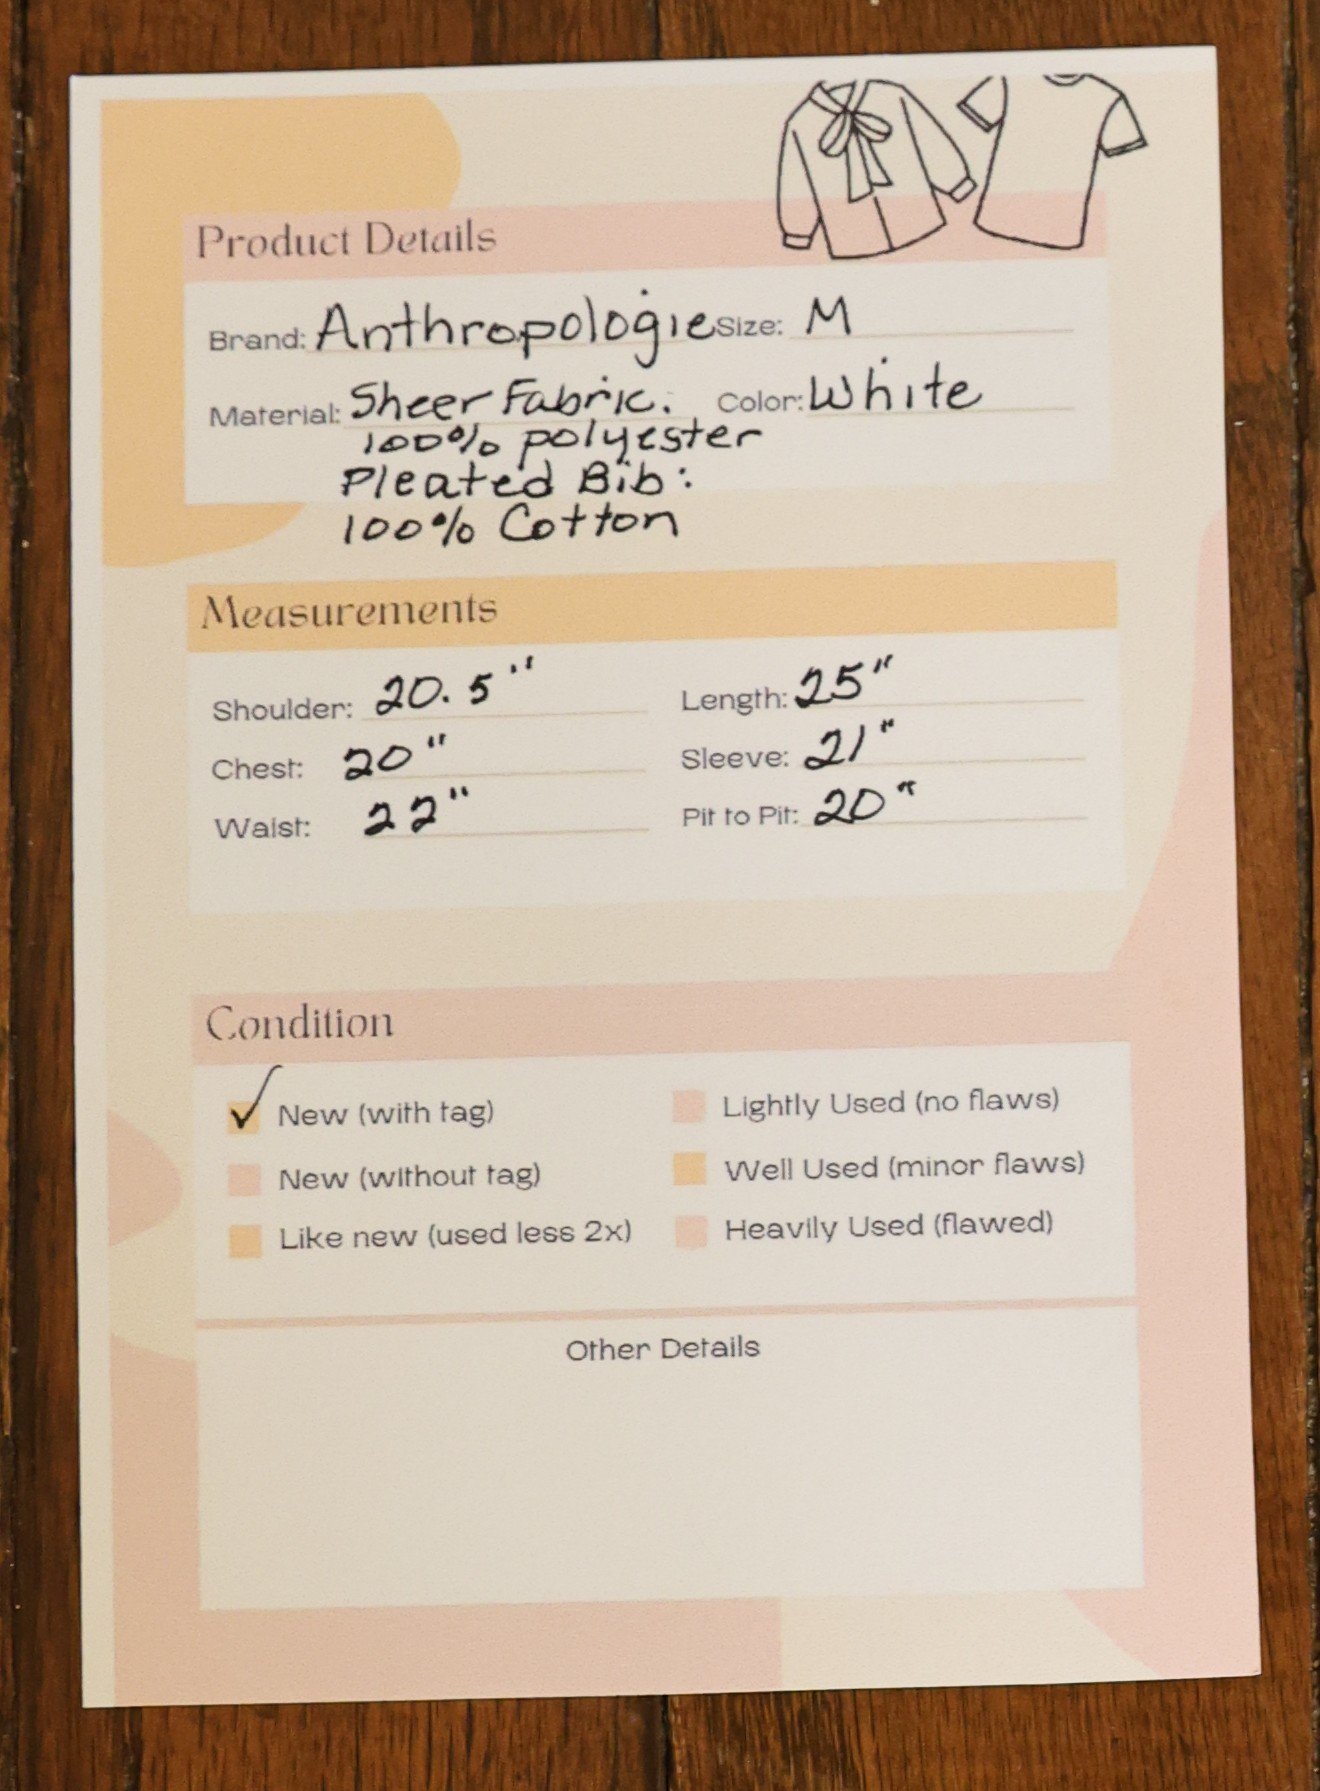 Product Details
Brand: Anthropologie Size: M
Material: Sheer Fabric. Color: White
100% polyester
Pleated Bib:
100% Cotton
Measurements
Shoulder: 20.5" Length: 25"
Chest: 20" Sleeve: 21"
Waist: 22" Pit to Pit: 20"
Condition
✓ New (with tag) Lightly Used (no flaws)
New (without tag) Well Used (minor flaws)
Like new (used less 2x) Heavily Used (flawed)
Other Details